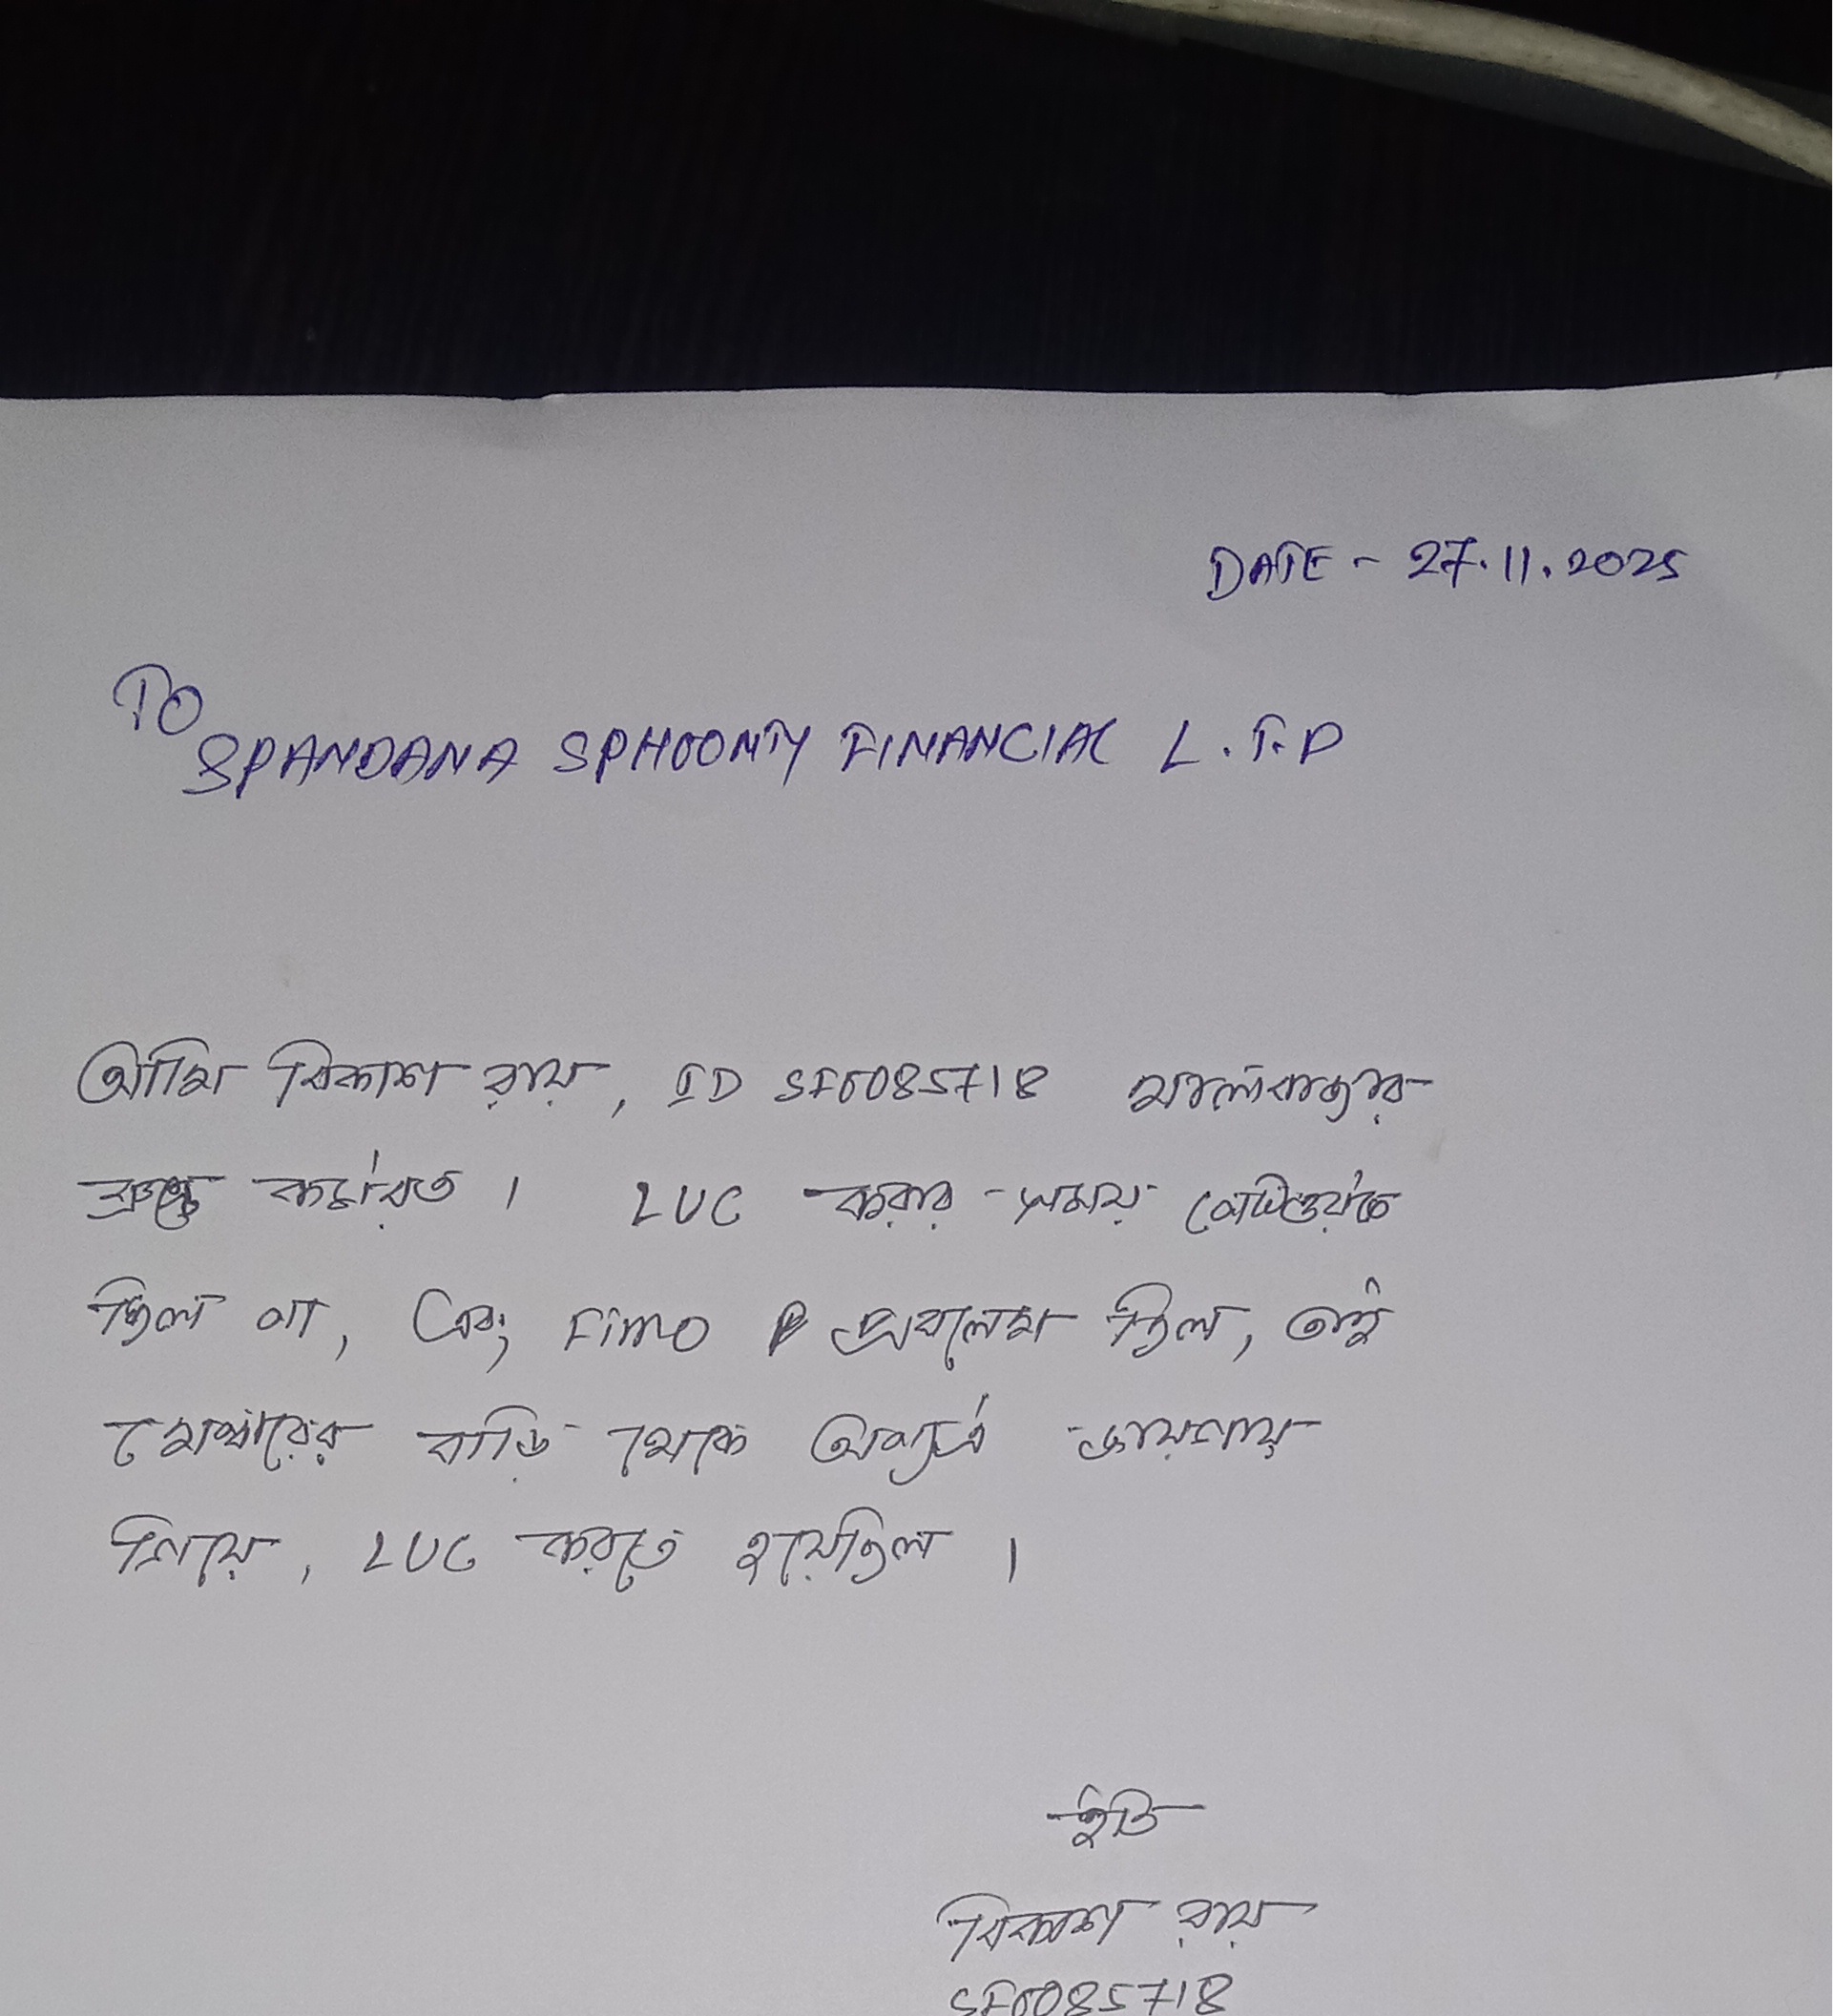 DATE - 27.11.2025
TO
SPANDANA SPHOORTY FINANCIAL L.T.D
আমি বিকাশ রায়, ID SF0085718 মালবাজার
ব্রাঞ্চে কর্মরত । LUC করার সময় নেটওয়ার্ক
ছিল না, এবং FIMO প্রবলেম ছিল, তাই
মেম্বারের বাড়ি থেকে অন্যত্র জায়গায়
গিয়ে, LUC করতে হয়েছিল ।
ইতি
বিকাশ রায়
SF0085718